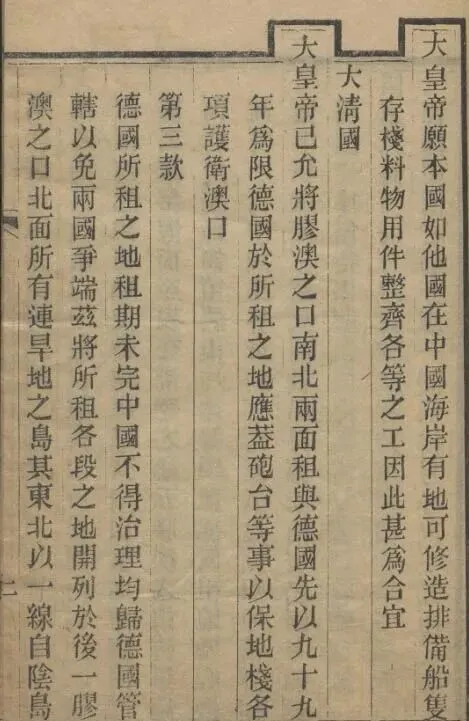 大皇帝願本國如他國在中國海岸有地可修造排備船隻
存棧料物用件整齊各等之工因此甚爲合宜
大清國
大皇帝已允將膠澳之口南北兩面租與德國先以九十九
年爲限德國於所租之地應葢砲台等事以保地棧各
項護衛澳口
第三款
德國所租之地租期未完中國不得治理均歸德國管
轄以免兩國爭端茲將所租各段之地開列於後一膠
澳之口北面所有連旱地之島其東北以一線自陰島